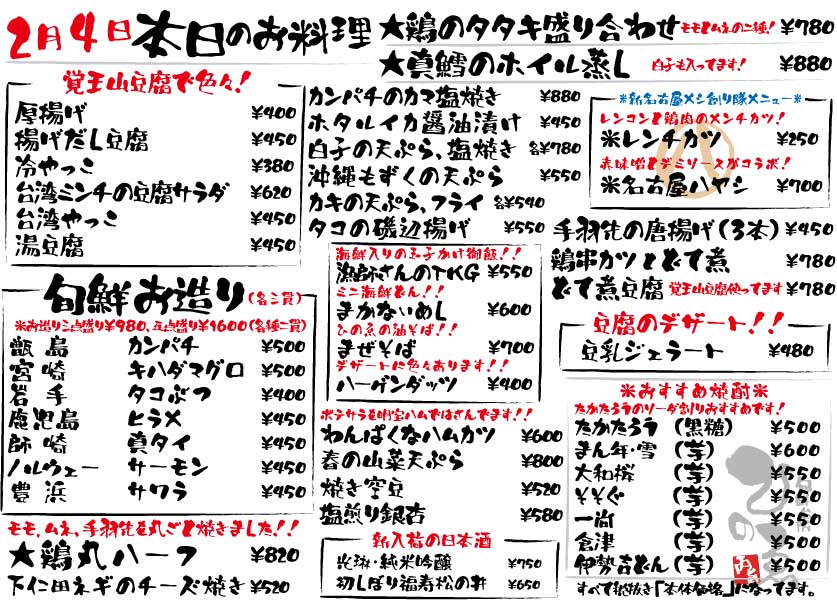 2月4日 本日のお料理
★鶏のタタキ盛り合わせ モモとムネの二種! ¥780
★真鱈のホイル蒸し 白子も入ってます! ¥880
覚王山豆腐で色々!
厚揚げ ¥400
揚げだし豆腐 ¥450
冷やっこ ¥380
台湾ミンチの豆腐サラダ ¥620
台湾やっこ ¥450
湯豆腐 ¥450
旬鮮お造り(各三貫)
※お造り三点盛り¥980、五点盛り¥1600(各種二貫)
甑島 カンパチ ¥500
宮崎 キハダマグロ ¥500
岩手 タコぶつ ¥400
鹿児島 ヒラメ ¥450
師崎 真タイ ¥450
ノルウェー サーモン ¥450
豊浜 サワラ ¥450
モモ、ムネ、手羽先を丸ごと焼きました!!
★鶏丸ハーフ ¥820
下仁田ネギのチーズ焼き ¥520
カンパチのカマ塩焼き ¥880
ホタルイカ醤油漬け ¥450
白子の天ぷら、塩焼き 各¥780
沖縄もずくの天ぷら ¥550
カキの天ぷら、フライ 各¥540
タコの磯辺揚げ ¥550
海鮮入りの玉子かけ御飯!!
漁師さんのTKG ¥550
ミニ海鮮どん!!
まかないめし ¥600
ひの魚の油そば!!
まぜそば ¥700
デザートに色々あります!!
ハーゲンダッツ ¥400
ポテサラを明宝ハムではさんでます!!
わんぱくなハムカツ ¥600
春の山菜天ぷら ¥800
焼き空豆 ¥520
塩煎り銀杏 ¥580
新入荷の日本酒
純米吟醸 ¥750
初しぼり福寿松の井 ¥650
※新名古屋メシ創り隊メニュー※
レンコンと鶏肉のメンチカツ!
※レンチカツ ¥250
赤味噌とデミソースがコラボ!
※名古屋ハヤシ ¥700
手羽先の唐揚げ(3本) ¥450
鶏串カツとどて煮 ¥780
どて煮豆腐 覚王山豆腐使ってます ¥780
豆腐のデザート!!
豆乳ジェラート ¥480
※おすすめ焼酎※
たかたろうのソーダ割りおすすめです!
たかたろう (黒糖) ¥500
まん年・雪 (芋) ¥600
大和桜 (芋) ¥550
そそぐ (芋) ¥550
一尚 (芋) ¥550
倉津 (芋) ¥500
伊勢吉どん (芋) ¥550
すべて税抜き「本体価格」になってます。